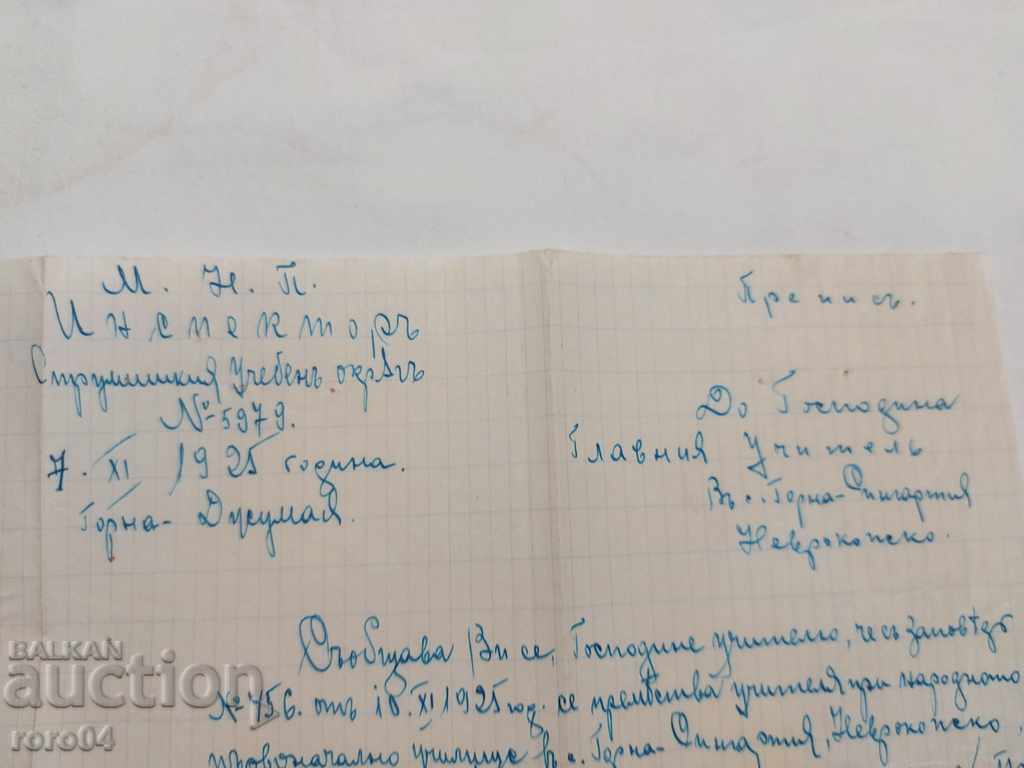 М. Н. П.
Инспекторъ
Струмишкия Учебенъ окрѫгъ
№ 5979.
7. XI 1925 година.
Горна-Джумая.
Преписъ.
До Господина
Главния Учитель
Въ с. Горна-Сингартия
Неврокопско.
Съобщава Ви се, Господине учителю, че съ заповѣдь
№ 756. отъ 18. XI 1925 год. се премѣства учителя при народното
първоначално училище въ с. Горна-Сингартия, Неврокопско,
BALKAN
auction
roro04